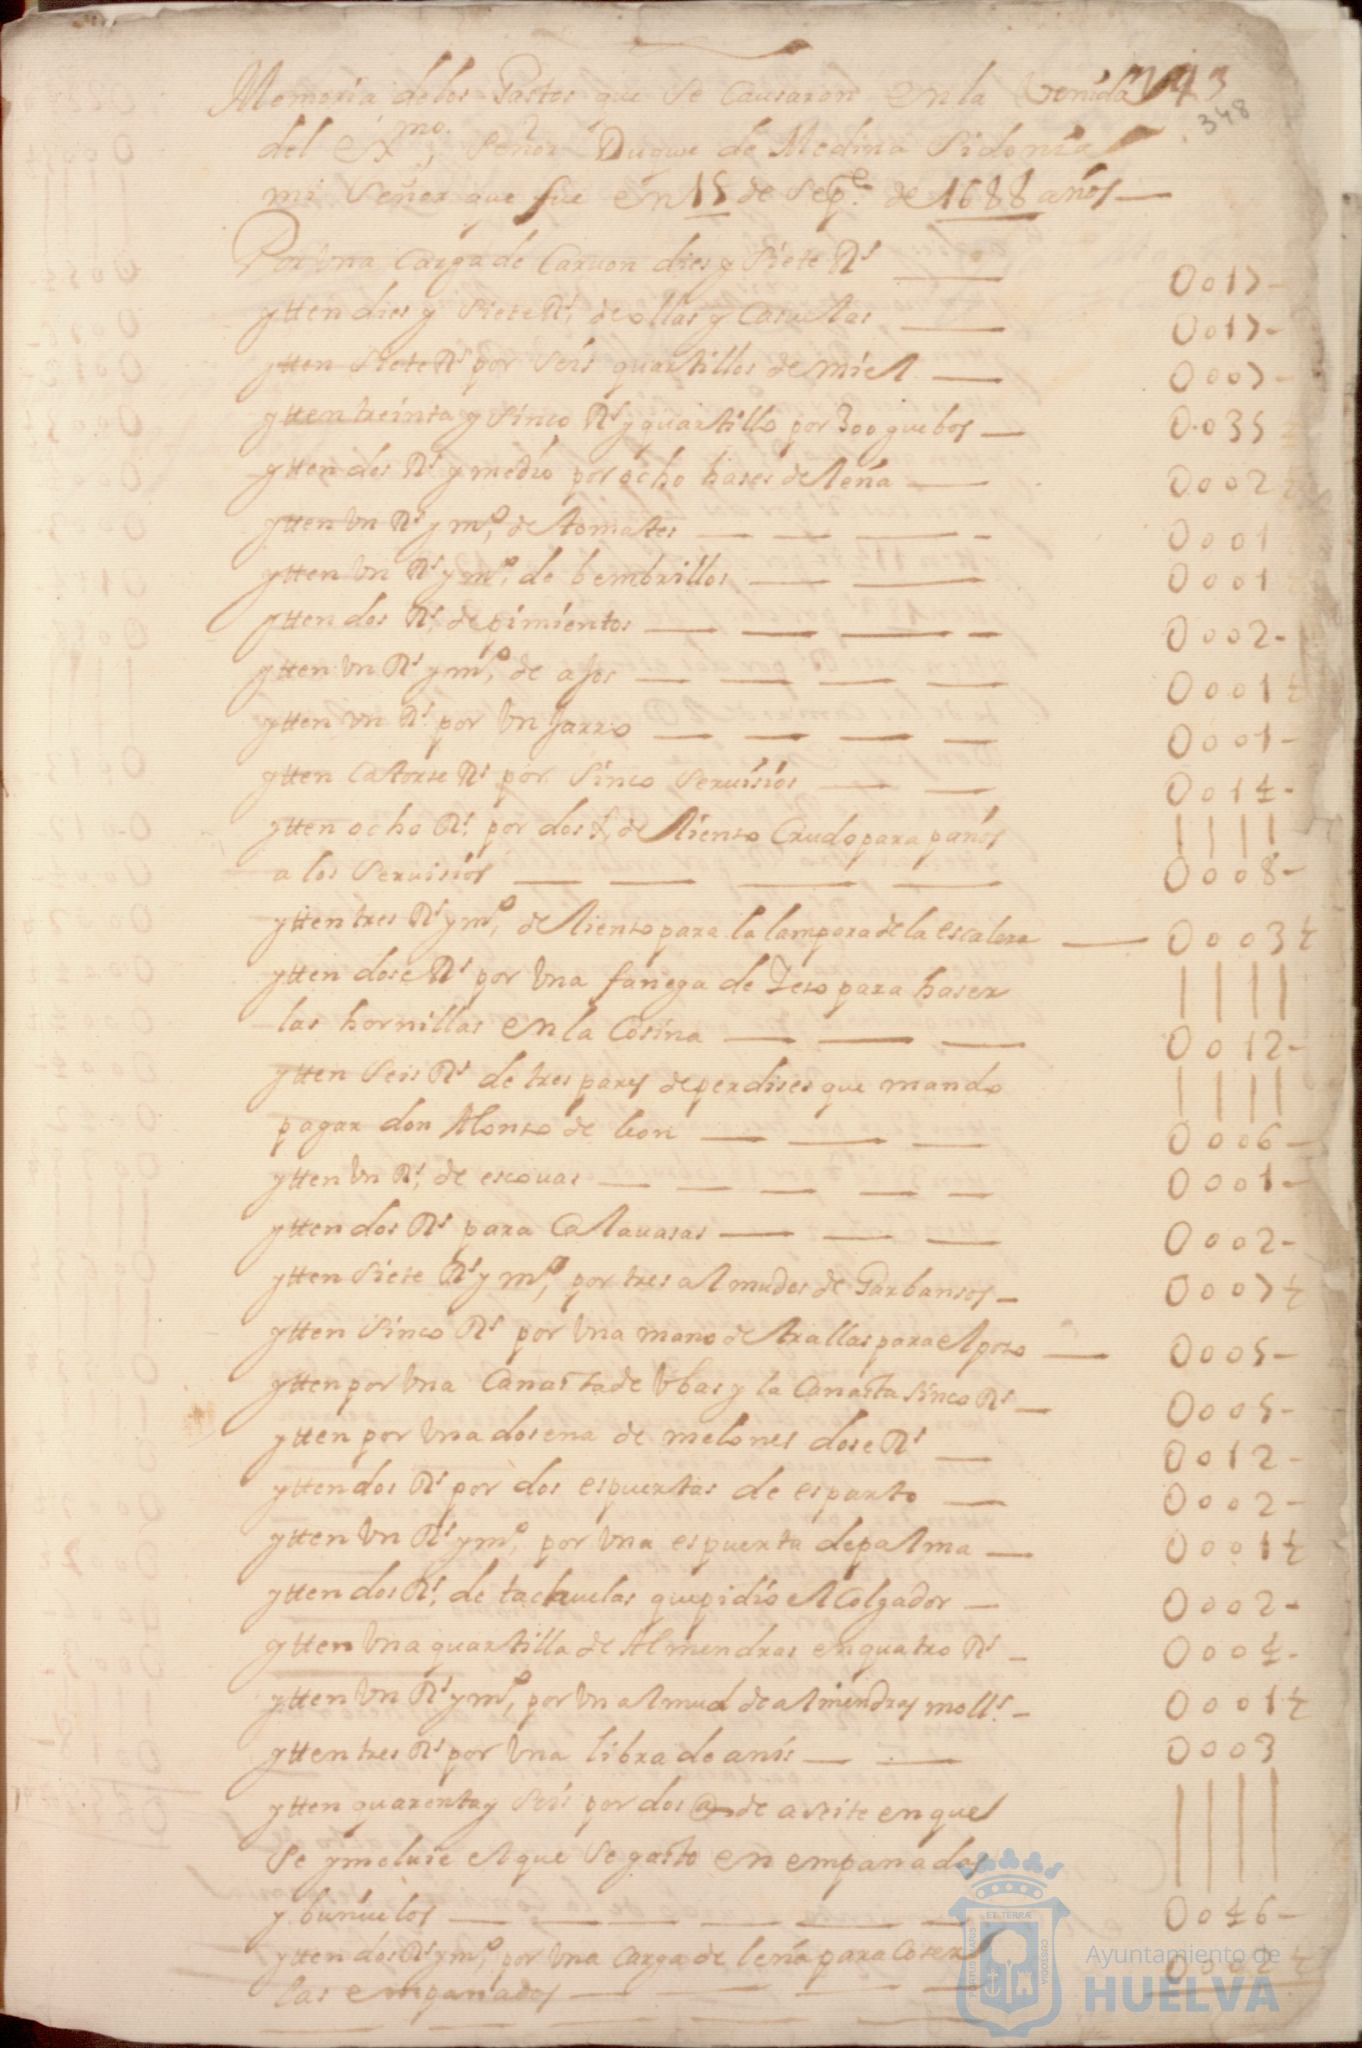 743
348
Memoria de los Gastos que se Causaron en la Venida
del Exmo. Señor Duque de Medina Sidonia
mi Señor que fue en 15 de Sepe. de 1688 años
Por Una Carga de Caruon dies y Siete Rs 0017
ytten dies y Siete Rs. de ollas y Casuelas 0017
ytten Siete Rs por seis quartillos de miel 0007
ytten treinta y Sinco Rs y quartillo por 300 guebos 0035
ytten dos Rs y medio por ocho hases de leña 0002½
ytten Un Rs y mo. de tomates 0001
ytten Un Rs y mo. de bembrillos 0001
ytten dos Rs. de pimientos 0002
ytten Un Rs y mo. de ajos 0001½
ytten Un Rs. por Un Jarro 0001
ytten Catorse Rs por Sinco Seruisios 0014
ytten ocho Rs. por dos de lienso Crudo para paños
a los Seruisios 0008
ytten tres Rs y mo. de lienso para la lampara de la escalera 0003½
ytten dose Rs por Una fanega de Jeso para haser
las hornillas en la Cosina 0012
ytten Seis Rs de tres pares de perdises que mando
pagar don Alonso de leon 0006
ytten Un Rs. de escouas 0001
ytten dos Rs para Calauasas 0002
ytten Siete Rs y mo. por tres almudes de Garbansos 0007½
ytten Sinco Rs por Una mano de trallas para el poso 0005
ytten por Una Canasta de Ubas y la Canasta sinco Rs 0005
ytten por Una dosena de melones dose Rs 0012
ytten dos Rs por dos espuertas de esparto 0002
ytten Un Rs y mo. por Una espuerta de palma 0001½
ytten dos Rs. de tachuelas que pidio el Colgador 0002
ytten Una quartilla de Almendras en quatro Rs 0004
ytten Un Rs y mo. por Un almud de almendras molls. 0001½
ytten tres Rs por Una libra de anis 0003
ytten quarenta y Seis por dos @ de aseite en que
se ymcluie el que se gasto en empanadas
y buñuelos 0046
ytten dos Rs y mo. por Una Carga de leña para Coser 0002½
las empanadas
Ayuntamiento de
HUELVA